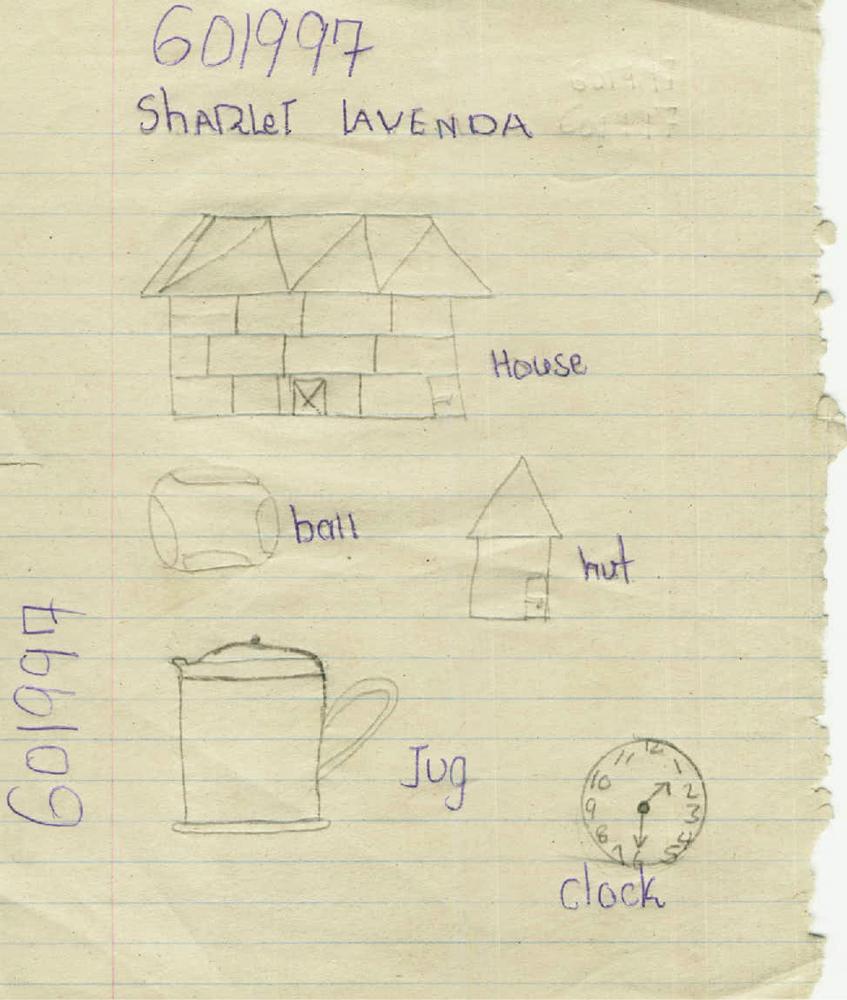 601997
SHARLET LAVENDA
House
ball
hut
Jug
12
11
1
10
2
9
3
8
4
7
6
5
clock
601997